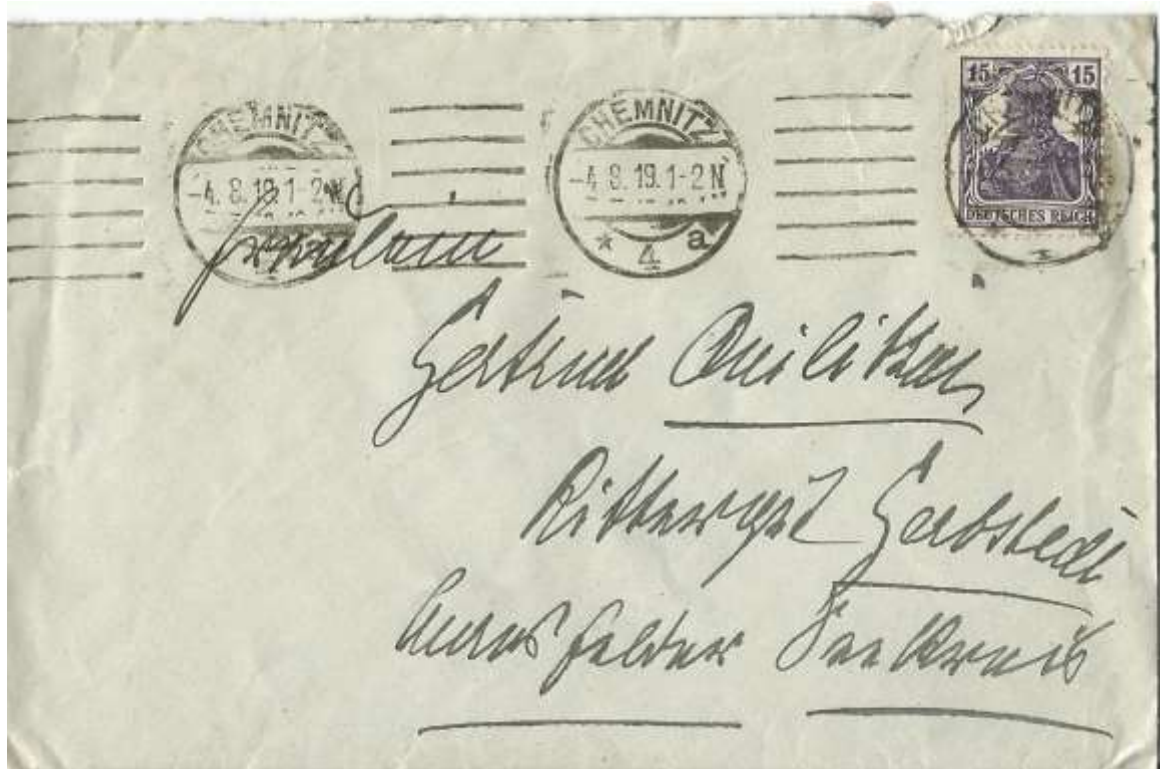 15 15
CHEMNITZ CHEMNITZ
-4.8.19.1-2N -4.8.19.1-2N
DEUTSCHES REICH
* 4 a
Fräulein
Gertrud Quilitzsch
Rittergut Gerbstedt
Mansfelder Seekreis